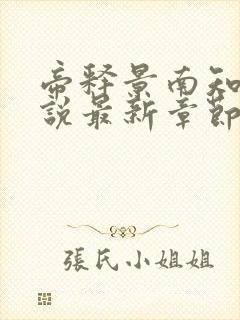 帝释景南知
說最新章節
張氏小姐姐